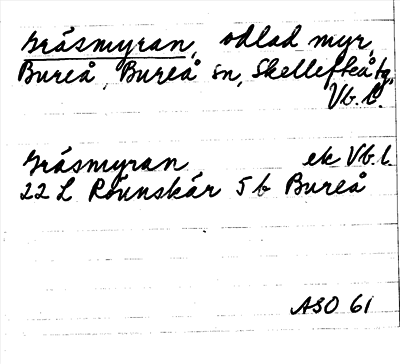 Gräsmyran, odlad myr,
Bureå, Bureå sn, Skellefteå tg,
Vb. l.
Gräsmyran ek Vb. l.
22 L Rönnskär 5 b Bureå
ASO 61